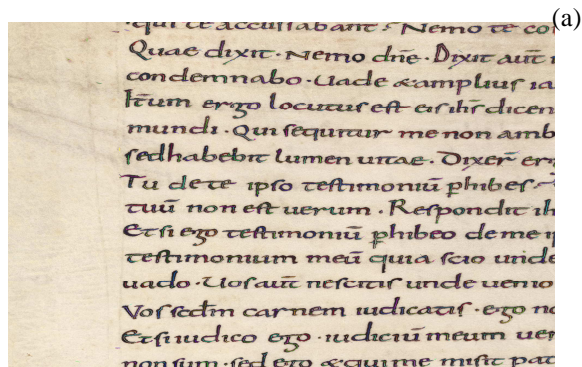 (a)
qui te accusabant · Nemo te co
Quae dixit · Nemo dn̄e · Dixit aut̄
condemnabo · Uade &amplius ia
Itūm ergo locutus est eis ih̄s dicen
mundi · Qui sequitur me non amb
sedhabebit lumen uitae · Dixer̄ erg
Tu dete ipso testimoniū p̱hibes ·
tuū non est uerum · Respondit ih
Etsi ego testimoniū p̱hibeo deme i
testimonium meū quia scio unde
uado · Uos aut̄ nescitis unde uenio
Vos secdm̄ carnem iudicatis · ego no
Etsi iudico ego · iudiciū meum uer
non sum · sed ego &qui me misit pat